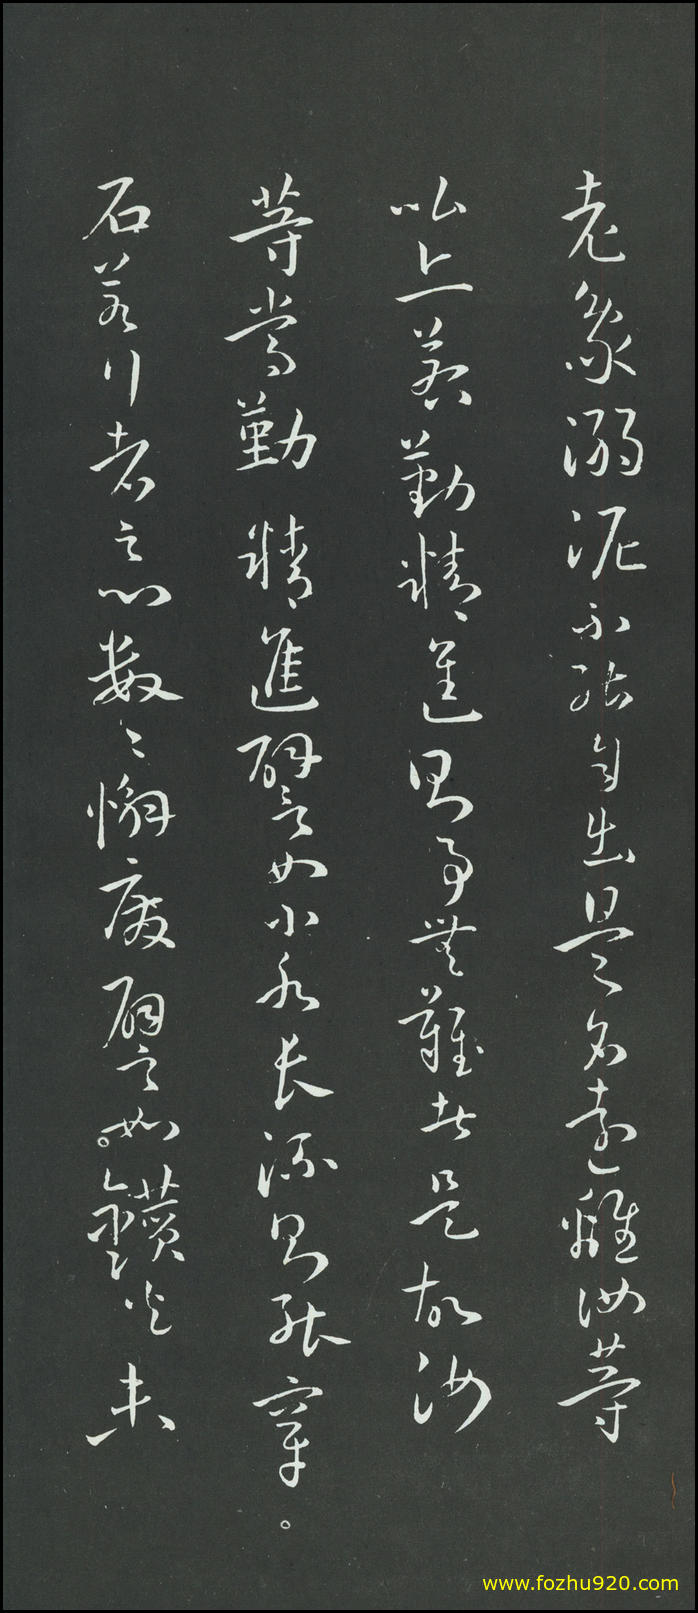 老象溺泥不能自出是名遠離汝等
比丘若勤精進則事無難者是故汝
等當勤精進譬如小水長流則能穿。
石若行者之心數〻懈廢譬如。鑽火未
www.fozhu920.com